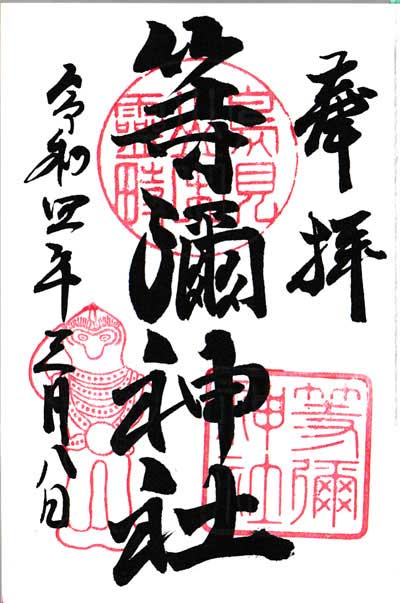 奉拝
等彌神社
令和四年三月八日
鳥見山
靈畤
等彌
神社